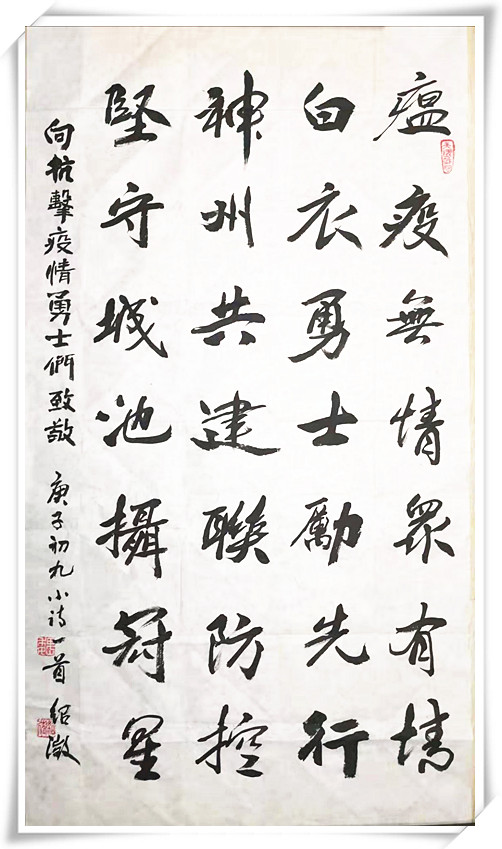 瘟疫無情眾有情
白衣勇士勵先行
神州共建聯防控
堅守城池攝冠星
向抗擊疫情勇士們致敬 庚子初九小詩一首 紹